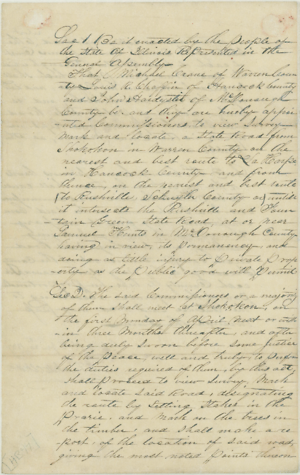 Sec 1 Be it enacted by the People of
the State of Illinois Represented in the
General Assembly
That Michael Crane of Warren Coun
ty Louis R Chaffin of Hancock County
and John Hardester of McDonough
County be and they are hereby appoin
ted Commissioners to view Survey
mark and locate a State Road from
in Warren County on the
nearest and best route to La Harpe
in Hancock County and from
thence on the nearest and best route
to Rushville Schuyler County or until
it intersects the Rushville and
Green State Road, at or near
in McDonough County
having in view, its permanency and
doing as little injury to Private Prop
erty as the Public good will Permit
Sec 2. The said Commissioners or a majority
of them Shall meet at on
the first Monday of April next or with
in three Months thereafter, and after
being duly Sworn before some Justice
of the Peace, well and truly to perform
the duties required of them, by this act
Shall proceed to view Survey, Mark
and locate Said Road, designating
the route by Setting Stakes in the
Prairie and marks on the trees in
the timber, and Shall make a re
port of the location of said road,
giving the most noted Points thereon